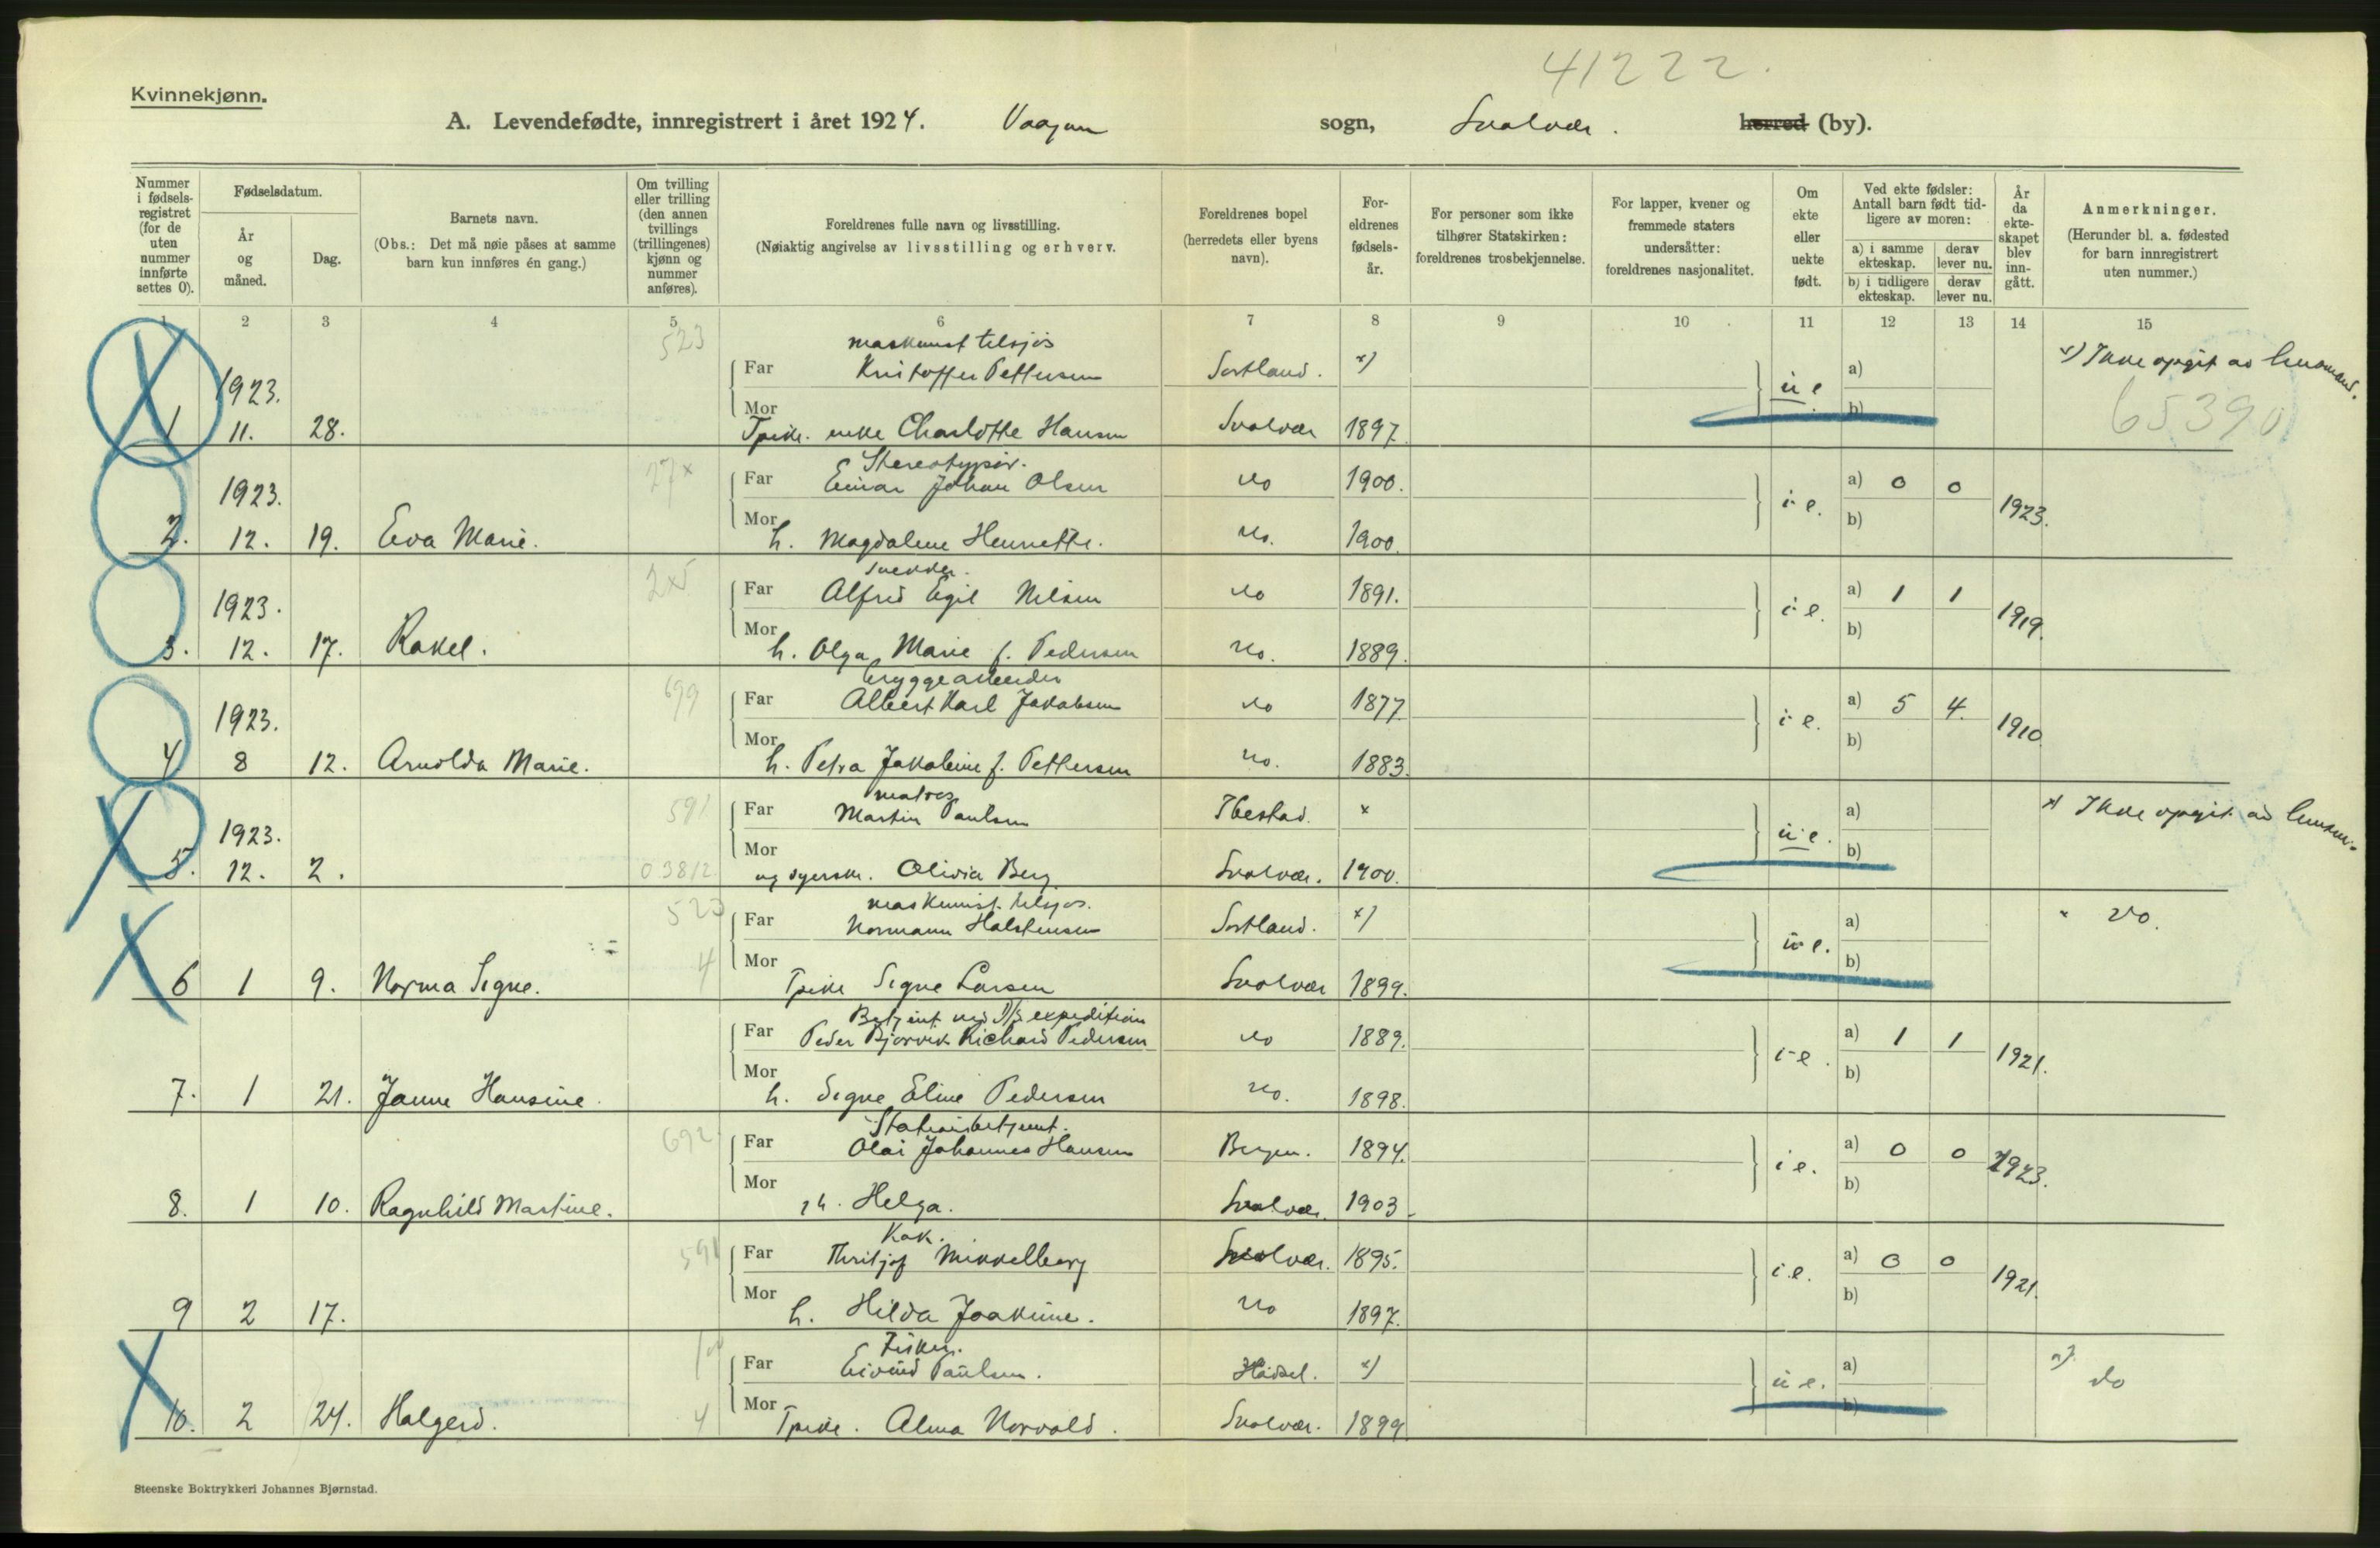 41222.
Kvinnekjønn.
A. Levendefødte, innregistrert i året 1924. Vaagan sogn, Svolvær. herred (by).
Nummer i fødselsregistret (for de uten nummer innførte settes 0).
Fødselsdatum.
År og måned.
Dag.
Barnets navn.
(Obs.: Det må nøie påses at samme barn kun innføres én gang.)
Om tvilling eller trilling (den annen tvillings (trillingenes) kjønn og nummer anføres).
Foreldrenes fulle navn og livsstilling.
(Nøiaktig angivelse av livsstilling og erhverv.
Foreldrenes bopel (herredets eller byens navn).
Foreldrenes fødselsår.
For personer som ikke tilhører Statskirken: foreldrenes trosbekjennelse.
For lapper, kvener og fremmede staters undersåtter: foreldrenes nasjonalitet.
Om ekte eller uekte født.
Ved ekte fødsler: Antall barn født tidligere av moren:
a) i samme ekteskap. derav lever nu.
b) i tidligere ekteskap. derav lever nu.
År da ekteskapet blev inngått.
Anmerkninger.
(Herunder bl. a. fødested for barn innregistrert uten nummer.)
1 2 3 4 5 6 7 8 9 10 11 12 13 14 15
523 maskinist tilsjøs
Far Kristoffer Pettersen Sortland. x) u e a) x) Ikke opgit av
1923.
Mor b) 65390
1 11. 28. Tpike. Charlotte Hansen Svolvær 1897
27x Stereotypør.
1923. Far Einar Johan Olsen do 1900. i e. a) 0 0 1923.
Mor b)
2. 12. 19. Eva Marie. h. Magdalene Henrette. do. 1900.
2x5
1923. Far Alfred Egil Nilsen do 1891. i e. a) 1 1 1919.
Mor b)
3. 12. 17. Rakel. h. Olga Marie f. Pedersen do. 1889.
699 bryggearbeider
1923. Far Albert Karl Jakobsen do 1877 i e. a) 5 4. 1910
Mor b)
4 8 12. Arnolda Marie. h. Petra Jakobine f. Pettersen do. 1883.
591 matros
1923. Far Martin Paulsen Ibestad. x u e. a) x) Ikke opgit av
Mor b)
5. 12. 2. 03812 ug syerske. Olivia Berg Svolvær. 1900.
523 maskinist tilsjøs.
Far Normann Halstensen Sortland. x) u e. a) x do.
Mor b)
6 1 9. Norma Signe. 4 Tpike Signe Larsen Svolvær 1899.
Betjent ved D/S expedition
Far Peder Bjorvik Richard Pedersen do 1889. i e. a) 1 1 1921.
Mor b)
7. 1 21. Janne Hansine. h. Signe Eline Pedersen do. 1898.
692 Stationsbetjent.
Far Olai Johannes Hansen Bergen. 1894. i e. a) 0 0 1923.
Mor b)
8. 1 10. Ragnhild Martine. h. Helga. Svolvær. 1903.
591 Kok.
Far Thritjof Mikkelberg Svolvær. 1895. i e. a) 0 0 1921.
Mor b)
9 2 17. h. Hilda Joakime. do 1897.
Fisker.
Far Eivind Paulsen. Hadsel. x) u e. a) x) do
Mor b)
10. 2 24. Halgerd. 4 Tpike. Alma Norvald. Svolvær. 1899
Steenske Boktrykkeri Johannes Bjørnstad.